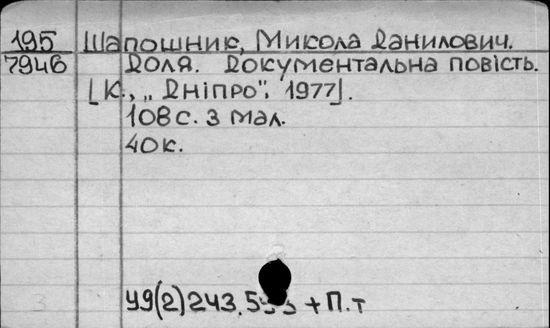 195 Шапошник, Микола Данилович.
7946 Доля. Документальна повість.
[К., „Дніпро", 1977].
108 с. з мал.
40 к.
У9(2)243. + П.т